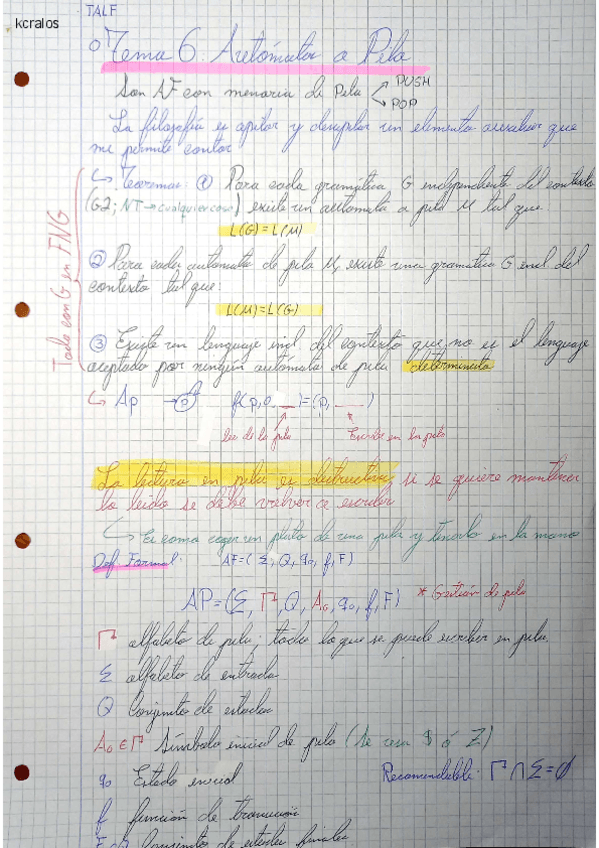 TALF
kcralos
Tema 6. Autómatas a Pila
Son AF con memoria de Pila
PUSH
POP
La filosofía es apilar y desapilar un elemento auxiliar que
me permite contar
Teoremas: ① Para cada gramática G independiente del contexto
(G2; NT → cualquier cosa) existe un autómata a pila M tal que:
L(G) = L(M)
② Para cada autómata de pila M, existe una gramática G ind del
contexto tal que:
L(M) = L(G)
③ Existe un lenguaje ind del contexto que no es el lenguaje
aceptado por ningún autómata de pila determinista
Todo con G en FNG
AP → f(p, _)=(p, _)
lee de la pila
Escribe en la pila
La lectura en pila es destructiva, si se quiere mantener
lo leído se debe volver a escribir
Es como coger un plato de una pila y tenerlo en la mano
Def. Formal: AF=(Σ, Q, q₀, f, F)
AP=(Σ, Γ, Q, A₀, q₀, f, F) * Gestión de pila
Γ alfabeto de pila; todo lo que se puede escribir en pila.
Σ alfabeto de entrada
Q Conjunto de estados
A₀ ∈ Γ Símbolo inicial de pila (Se usa $ ó Z)
q₀ Estado inicial
Recomendable: Γ ∩ Σ = ∅
f función de transición
Conjunto de estados finales